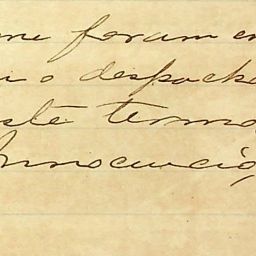 me foram en
i o despacho
ste termo
Innocencio,